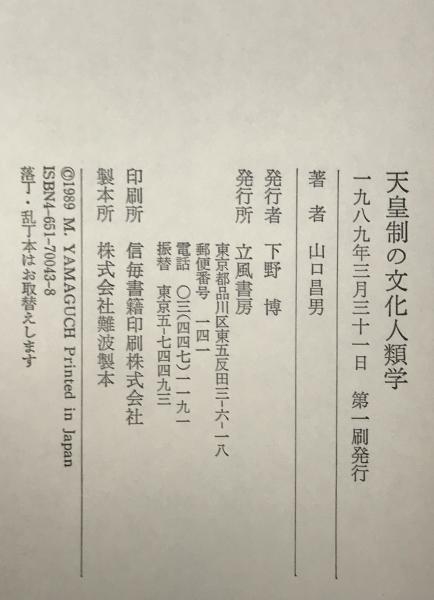 天皇制の文化人類学
一九八九年三月三十一日　第一刷発行
著　者　山口昌男
発行者　下野　博
発行所　立風書房
東京都品川区東五反田三-六-一八
郵便番号　一四一
電話　〇三(四四七)一一九一
振替　東京五-七四四九三
印刷所　信毎書籍印刷株式会社
製本所　株式会社難波製本
©1989 M. YAMAGUCH Printed in Japan
ISBN4-651-70043-8
落丁・乱丁本はお取替えします